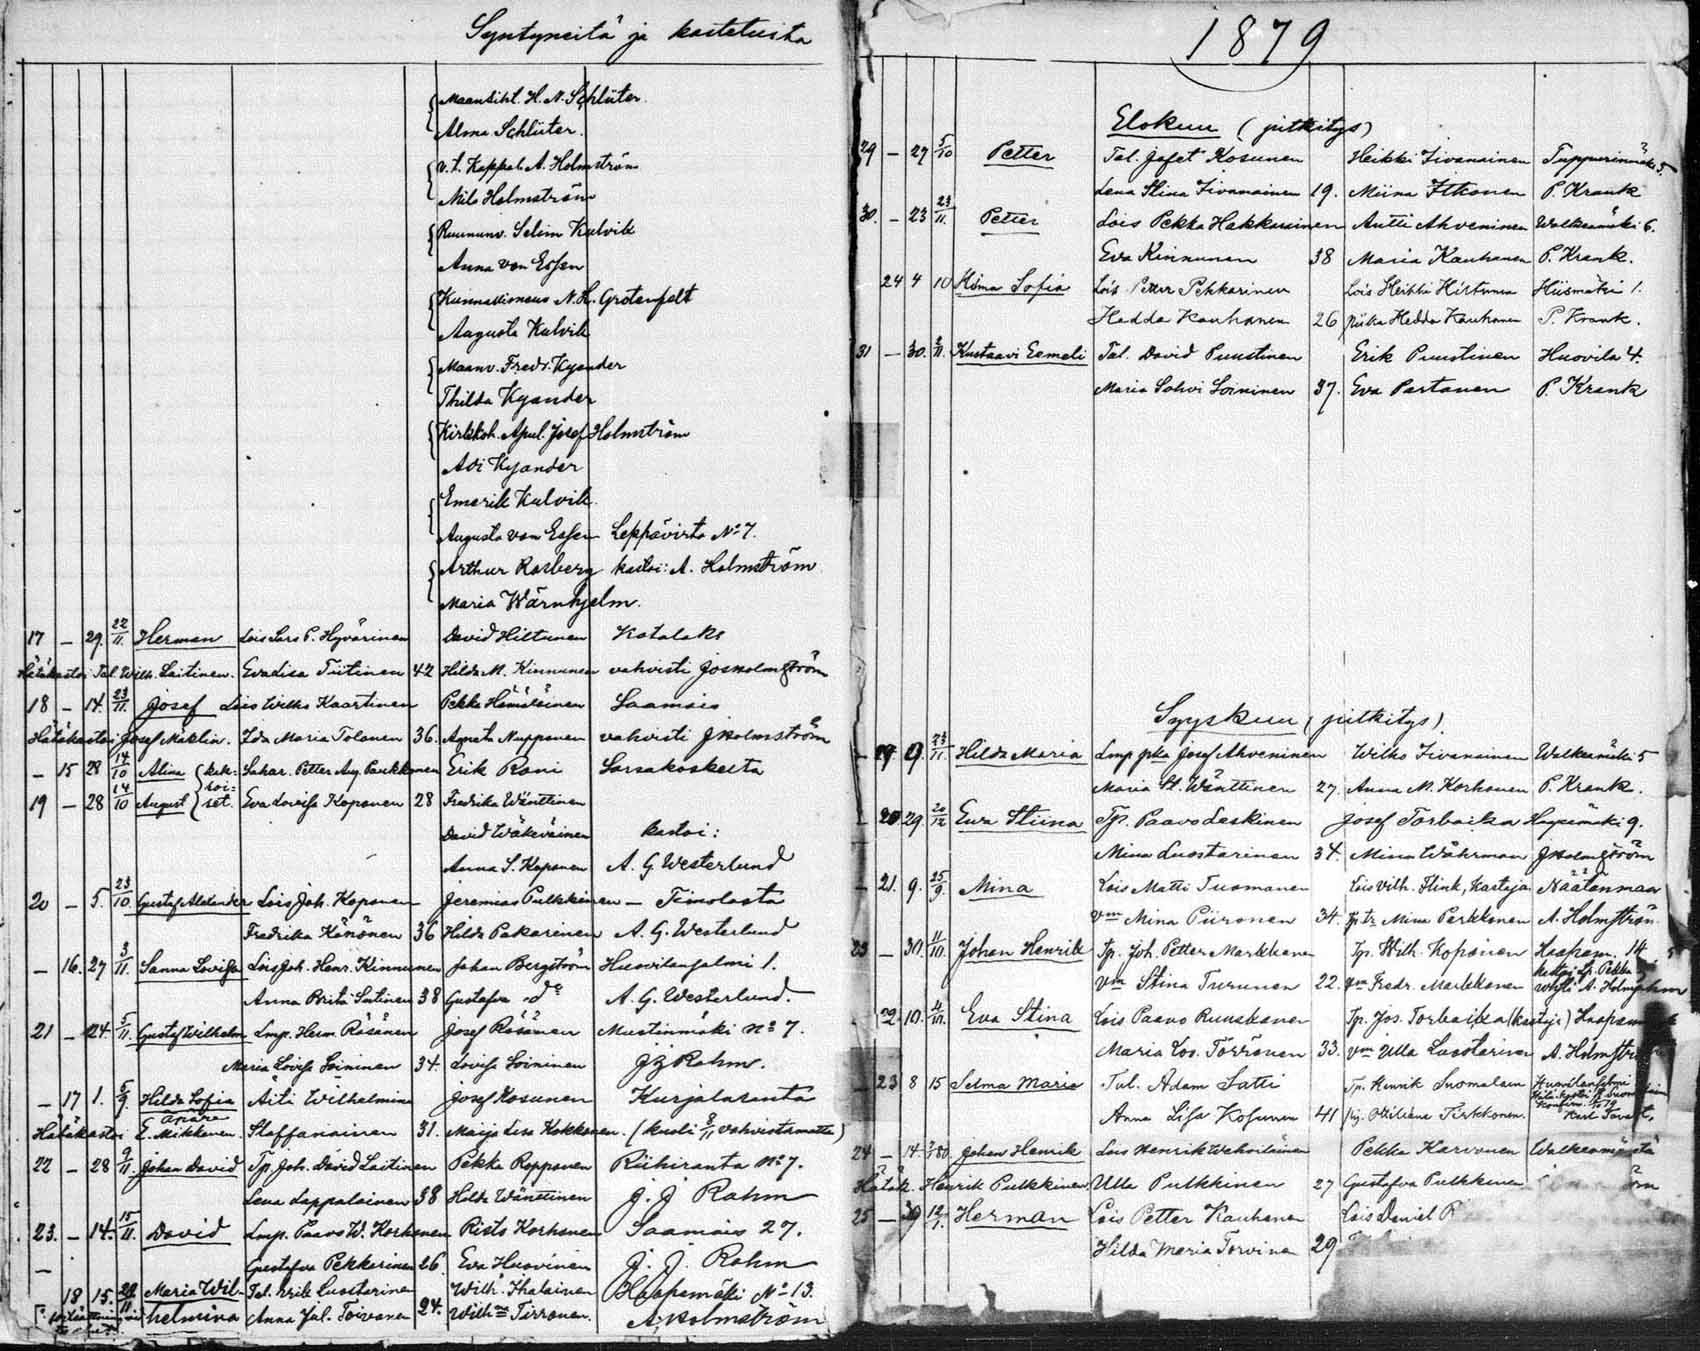 Syntyneitä ja kastetuita
Maansiht. H. N. Schlüter.
Alma Schlüter.
v.t. Kappal. A. Holmström
Nils Holmström
Ruununv. Selim Kulvik
Anna von Essen
Kunnallisneus N. H. Grotenfelt
Augusta Kulvik
Maanv. Fredr. Kyander
Thilda Kyander
Kirkkoh. Apul. Josef Holmström
Adi Kyander
Emerik Kulvik
Augusta von Essen Leppävirta No 7.
Arthur Rosberg kastoi: A. Holmström
Maria Wärnhjelm.
17 – 29. 22/11. Herman Lois Lars P. Hyvärinen David Hiltunen Kotalaks
Hätäkastoi Tal. Wilh. Laitinen. Evadisa Tiitinen 42 Hilda M. Kinnunen vahvisti Jos Holmström
18 – 14. 23/11. Josef Lois Wilho Kaartinen Pekka Hämäläinen Saamais
Hätäkastoi Josef Mäklin. Ida Maria Tolonen 36. Agneta Nupponen vahvisti J Holmström
– 15 28 14/10 Alina (kak- Sakar. Petter Aug. Paukkonen Erik Roni Sorsakoskelta
soi=
19 – 28 14/10 August set. Eva Lovisa Koponen 28 Fredrika Wänttinen
David Wäkeväinen kastoi:
Anna S. Koponen A. G. Westerlund
20 – 5. 23/10. Gustaf Alexander Lois Joh. Koponen Jeremias Pulkkinen – Timolasta
Fredrika Könönen 36 Hilda Pakarinen A. G. Westerlund
– 16. 27 3/11. Sanna Lovisa Lois Joh. Henr. Kinnunen Johan Bergström Huovilansalmi 1.
Anna Brita Sutinen 38 Gustafva do A. G. Westerlund.
21 – 24. 5/11. Gustaf Wilhelm Lmp. Heim Räsänen Josef Räsänen Mustinmäki No 7.
Maria Lovisa Soininen 34. Lovisa Soininen J J Rahm.
– 17 1. 5/9. Hilda Sofia Äiti Wilhelmina Josef Kosunen Kurjalaranta
Hätäkastoi E. Mikkonen. Staffanainen 31. Maija Lisa Kokkonen. (kuoli 8/11 vahvistamatta)
22 – 28 9/11. Johan David Tp. Joh. David Laitinen Pekka Ropponen Riihiranta No 7.
Lena Lappalainen 38 Hilda Wänttinen J. J Rahm
23. – 14. 15/11. David Lmp. Paavo W. Korhonen Risto Korhonen Saamais 27.
Gustafva Pekkarinen 26. Eva Huovinen J. J. Rahm
18 15. Maria Wil- Tal. Erik Luostarinen Wilh. Ihalainen Haapamäki No 13.
helmina Anna Jul. Toivanen 24. Wilhna Tirronen. A. Holmström
1879
Elokuu (jutkitys)
29 – 27 5/10 Petter Tal. Jafet Kosunen Heikki Iivanainen Tuppurinmäki 5.
Lena Stina Iivanainen 19. Miina Itkonen P. Krank
30. – 23 23/11. Petter Lois Pekka Hakkarainen Antti Ahveninen Walkeamäki 6.
Eva Kinnunen 38 Maria Kauhanen P. Krank.
24 4 10 Alma Sofia Lois Petter Pekkarinen Lois Heikki Hiltunen Hiismäki 1.
Hedda Kauhanen 26 piika Hedda Kauhanen P. Krank.
31 – 30. Kustaavi Eemeli Tal. David Puustinen Erik Puustinen Huovila 4.
Maria Sohvi Soininen 37. Eva Partanen P. Krank
Syyskuu (jutkitys)
– 19 9. 23/11. Hilda Maria Lmp pka Josef Ahveninen Wilho Iivanainen Walkeamäki 5
Maria St. Wänttinen 27. Anna M. Korhonen P. Krank.
– 20 29. 20/12 Eva Stiina Tp. Paavo Leskinen Josef Torvaika Haapamäki 9.
Mina Luostarinen 34. Mina Währman J Holmström
– 21. 9. 25/9. Mina Lois Matti Tuomanen Lois Vilh. Flink, kastaja Näätänmaa
vm Mina Piironen 34. Mina Parkkonen A. Holmström
– 30. 11/10. Johan Henrik Tp. Joh. Petter Markkanen Tp. Wilh. Koponen Haapam. 14
vm Stina Turunen 22. vm Fredr. Markkanen A. Holmström
22. 10. 4/10. Eva Stina Lois Paavo Ruuskanen Tp. Jos. Torvaika (kastaja) Haapam
Maria Lov. Törrönen 33. vm Ulla Luostarinen A. Holmström
– 23 8 15 Selma Maria Tal. Adam Satti Tp. Henrik Suomalain Huovilansalmi
Anna Lisa Kosunen 41 Ottiliana Pirkkonen.
24 – 14. Johan Henrik Lois Henrik Wehviläinen Pekka Karvonen Walkeamäestä
Hätäk. Henrik Pulkkinen Ulla Pulkkinen 27 Gustafva Pulkkinen
25 – Herman Lois Petter Kauhanen Lois Daniel
Hilda Maria Torvinen 29